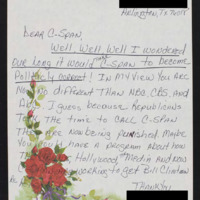 Arlington, TX 76015
Dear C-Span,
Well, Well, Well I wondered
how long it would take C-Span to become
Politically Correct! In my view you are
no different than NBC, CBS, and
I guess because Republicans
the time to call C-Span
are now being punished. Maybe
you should have a program about how
Hollywood, Media and now
working to get Bill Clinton
Thank you